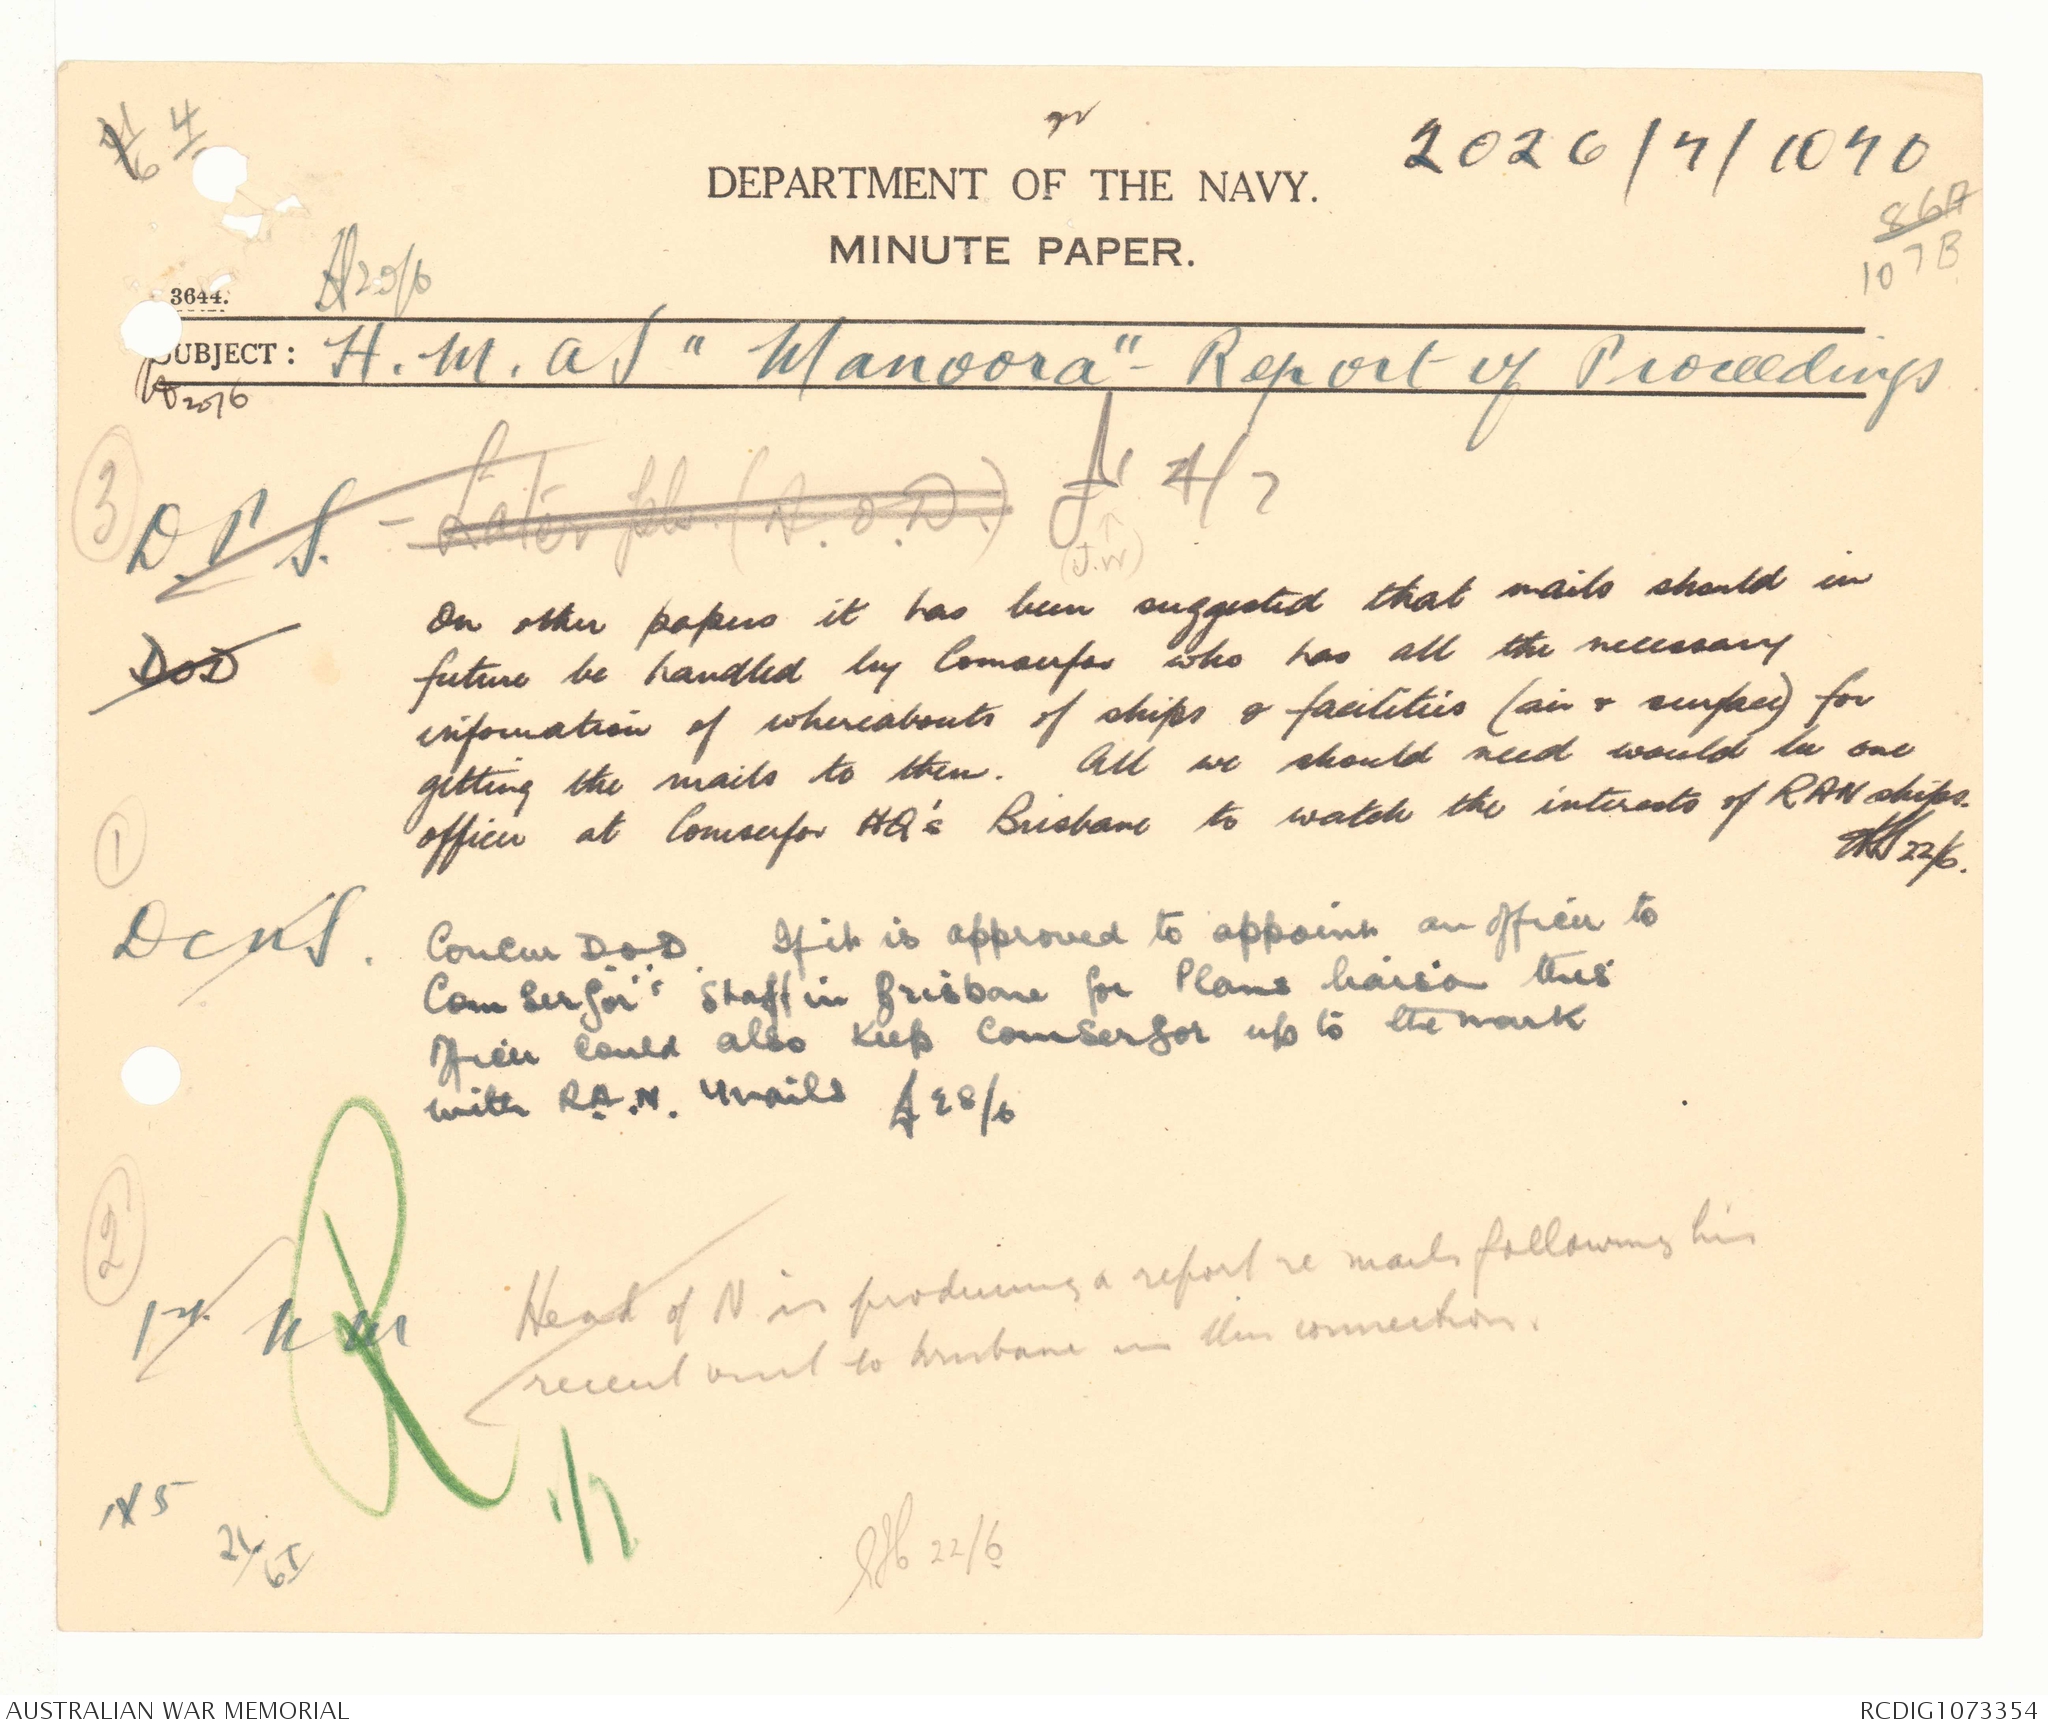 4
2026/7/1070
DEPARTMENT OF THE NAVY.
86A
MINUTE PAPER.
107B
20/6
3644.
SUBJECT: H.M.A.S "Manoora" - Report of Proceedings
20/6
3
D.P.S. - Later pls. (A.O.D.) 4/7
(J.W)
DOD
On other papers it has been suggested that mails should in
future be handled by Comserfor who has all the necessary
information of whereabouts of ships & facilities (air & surface) for
getting the mails to them. All we should need would be one
officer at Comserfor HQ's Brisbane to watch the interests of RAN ships.
22/6.
1
DCNS.
Concur DOD. If it is approved to appoint an officer to
"ComSerfor's" Staff in Brisbane for Plans liaison this
officer could also keep ComSerfor up to the mark
with R.A.N. Mails 28/6
2
1st N M
Head of N is producing a report re mails following his
recent visit to Brisbane in this connection.
1/7
5
22/6
AUSTRALIAN WAR MEMORIAL
RCDIG1073354